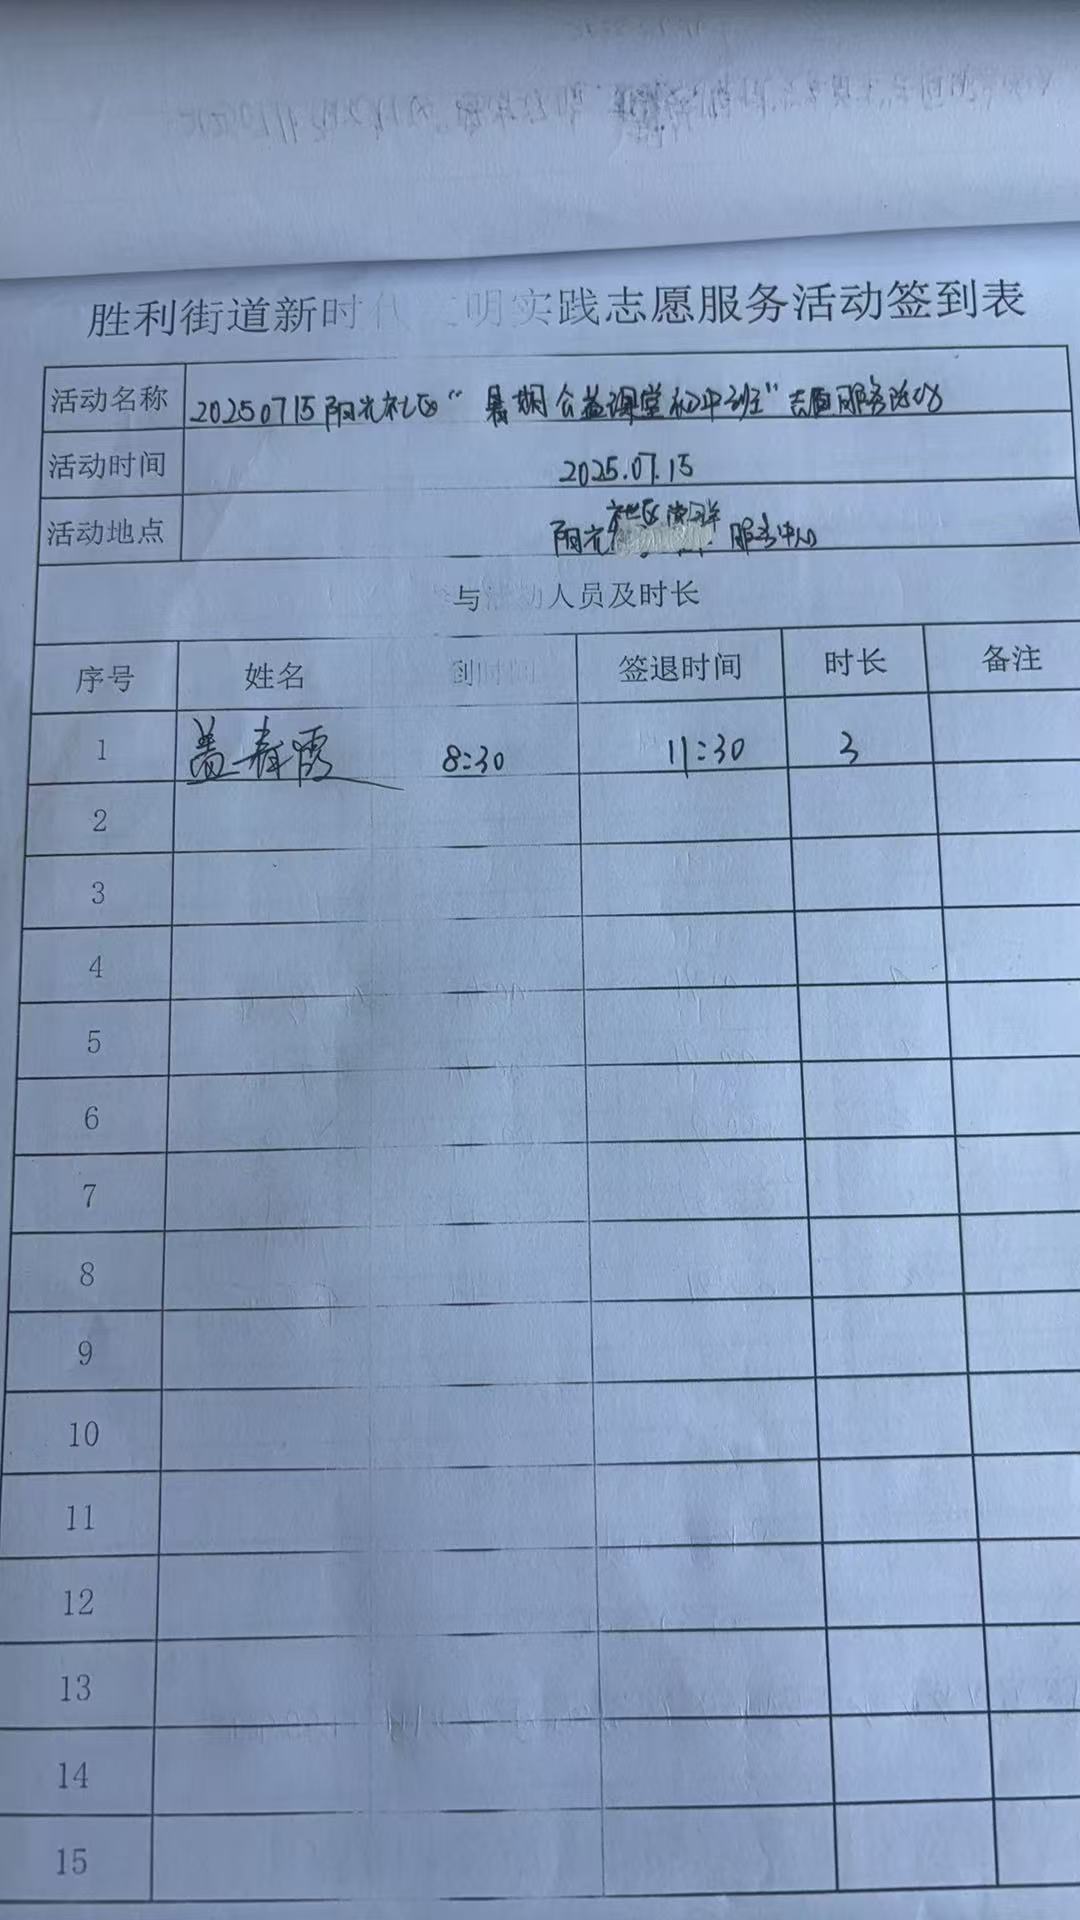 胜利街道新时代文明实践志愿服务活动签到表
活动名称 20250715阳光社区“暑期公益课堂初中班”志愿服务活动
活动时间 2025.07.15
活动地点 阳光社区党群服务中心
参与活动人员及时长
序号 姓名 到时间 签退时间 时长 备注
1 盖春霞 8:30 11:30 3
2
3
4
5
6
7
8
9
10
11
12
13
14
15